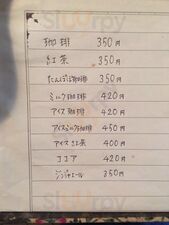 珈琲 350円
紅茶 350円
たんぽぽ珈琲 350円
ミルク珈琲 420円
アイス珈琲 420円
アイスミルク珈琲 450円
アイス紅茶 400円
ココア 420円
ジンジャエール 350円